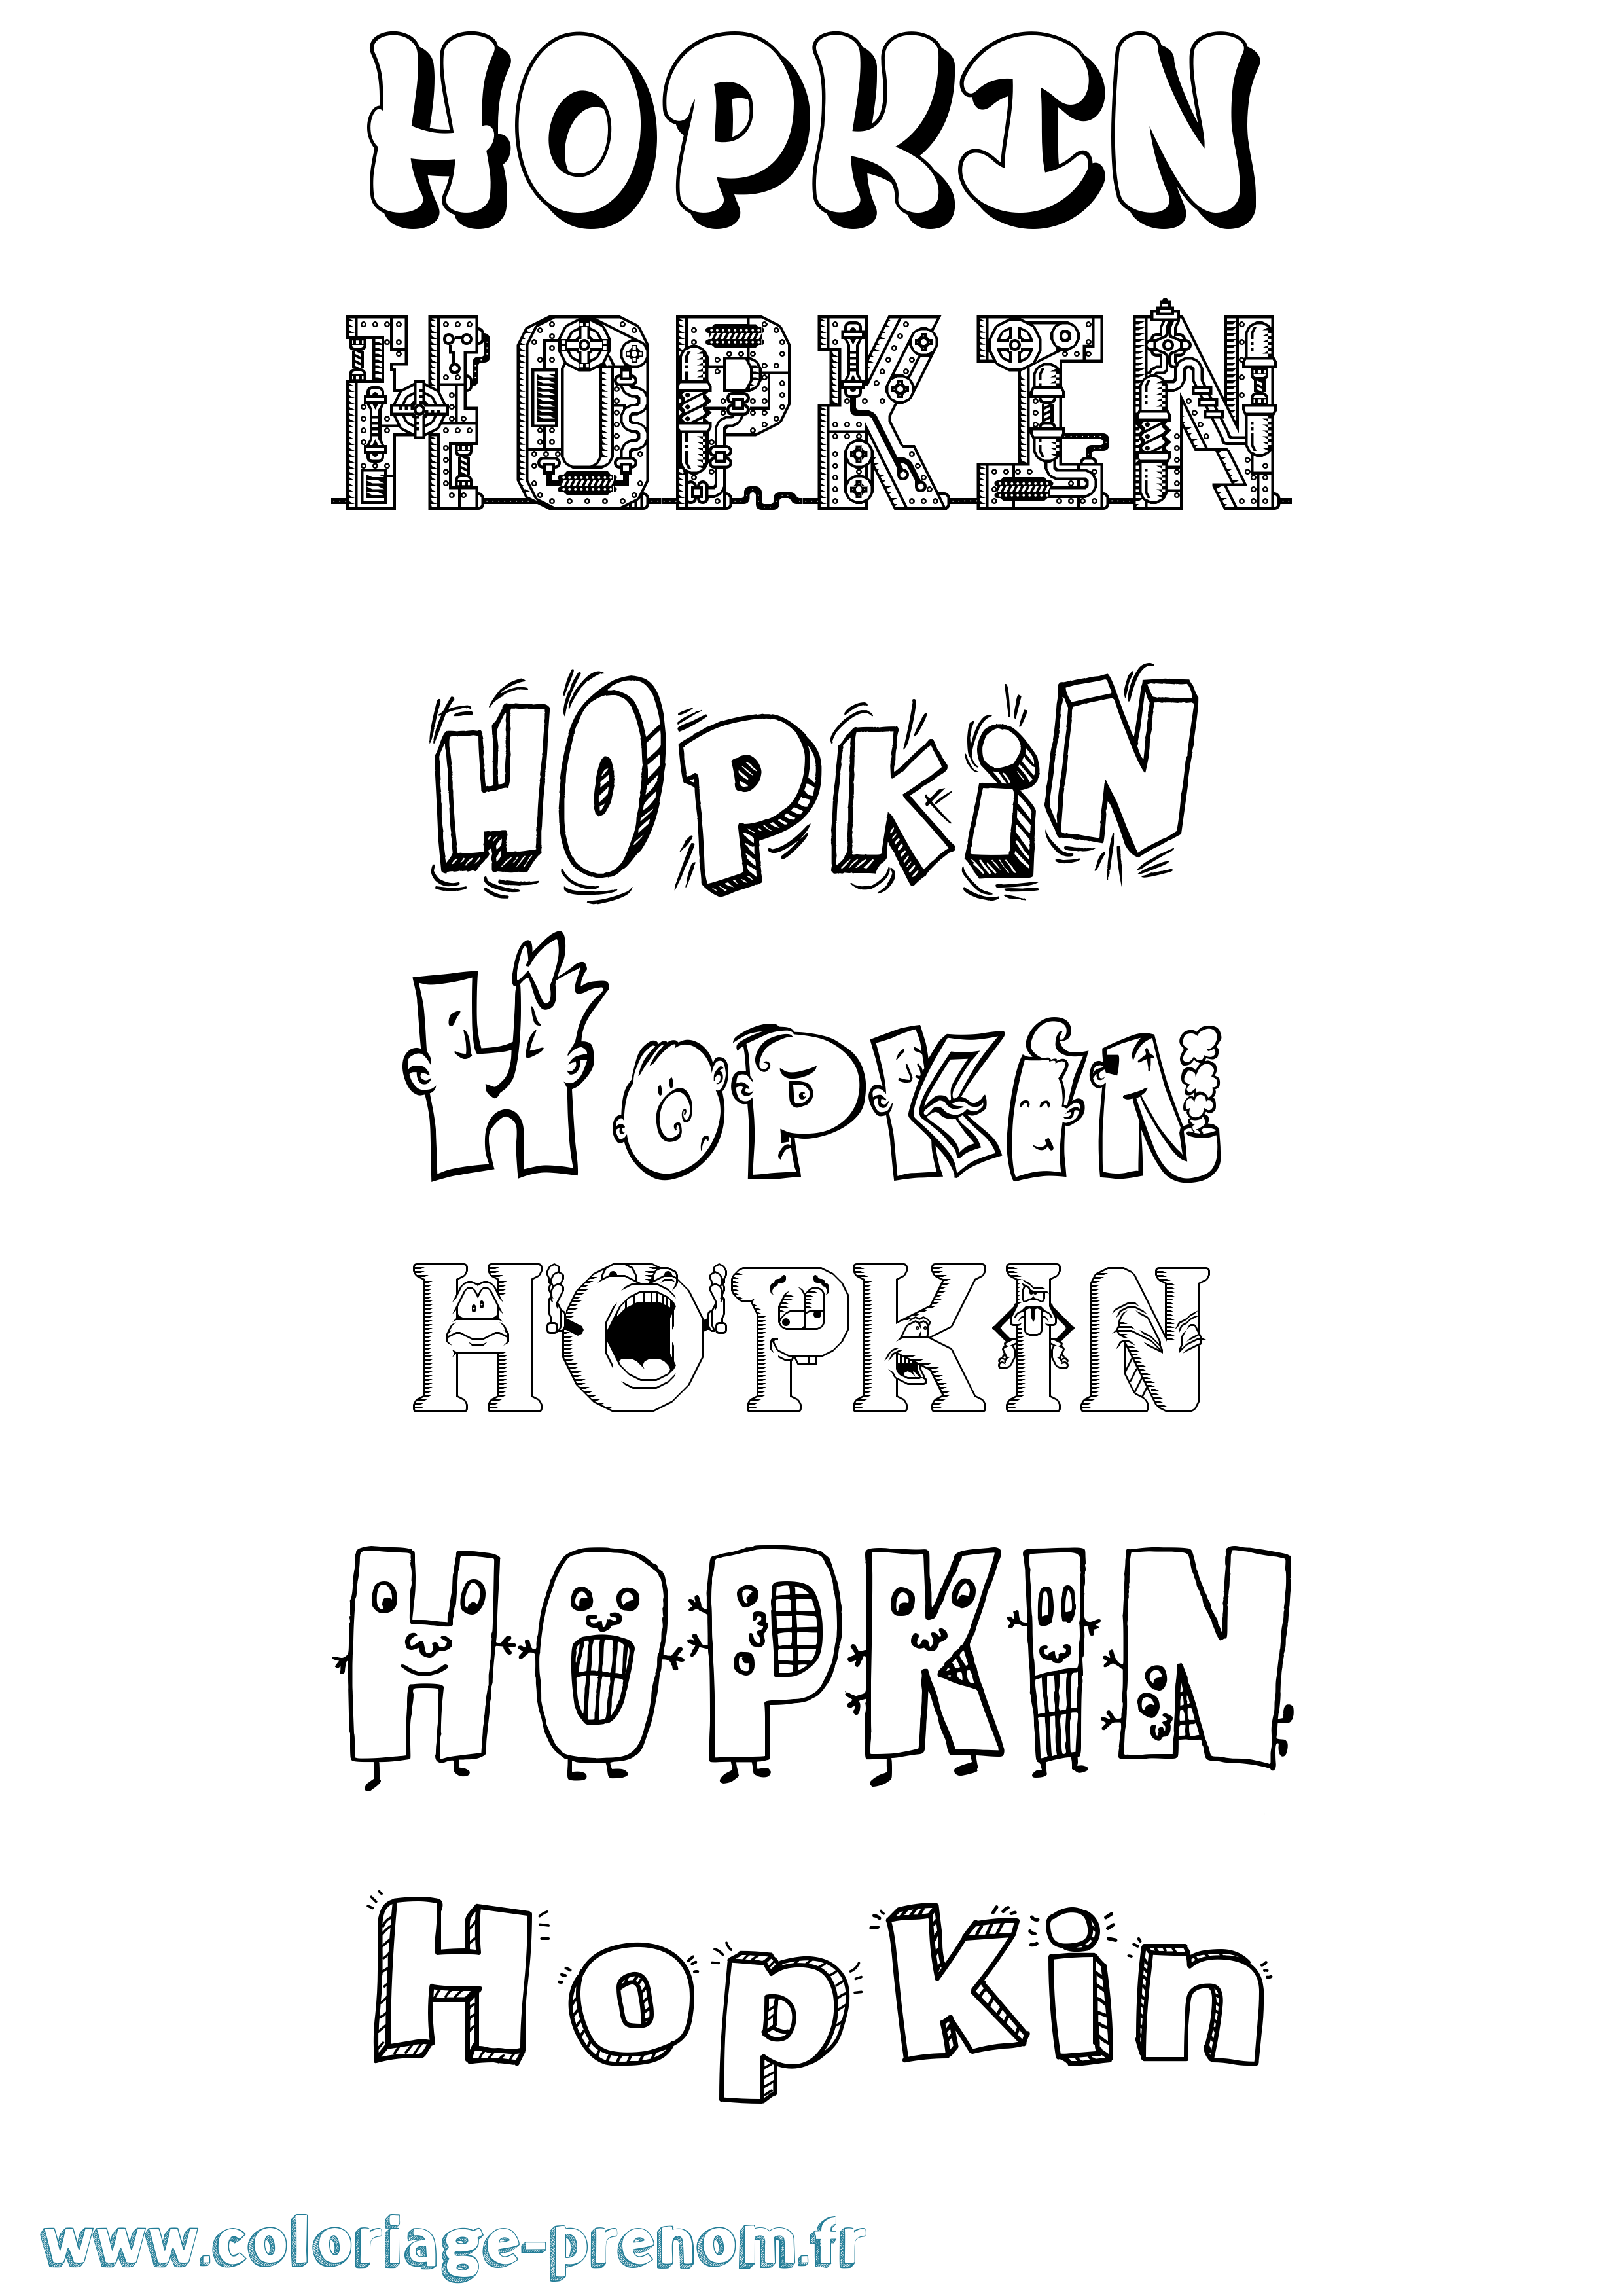 HOPKIN
HOPKIN
HOPKiN
HOPKIN
HOPKIN
HOPKIN
Hopkin
www.coloriage-prenom.fr